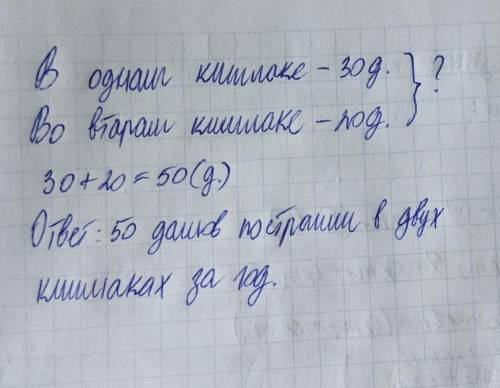 В одном кишлаке – 30д. } ?
Во втором кишлаке – 20д.
30+20=50(д.)
Ответ: 50 домов построили в двух
кишлаках за год.